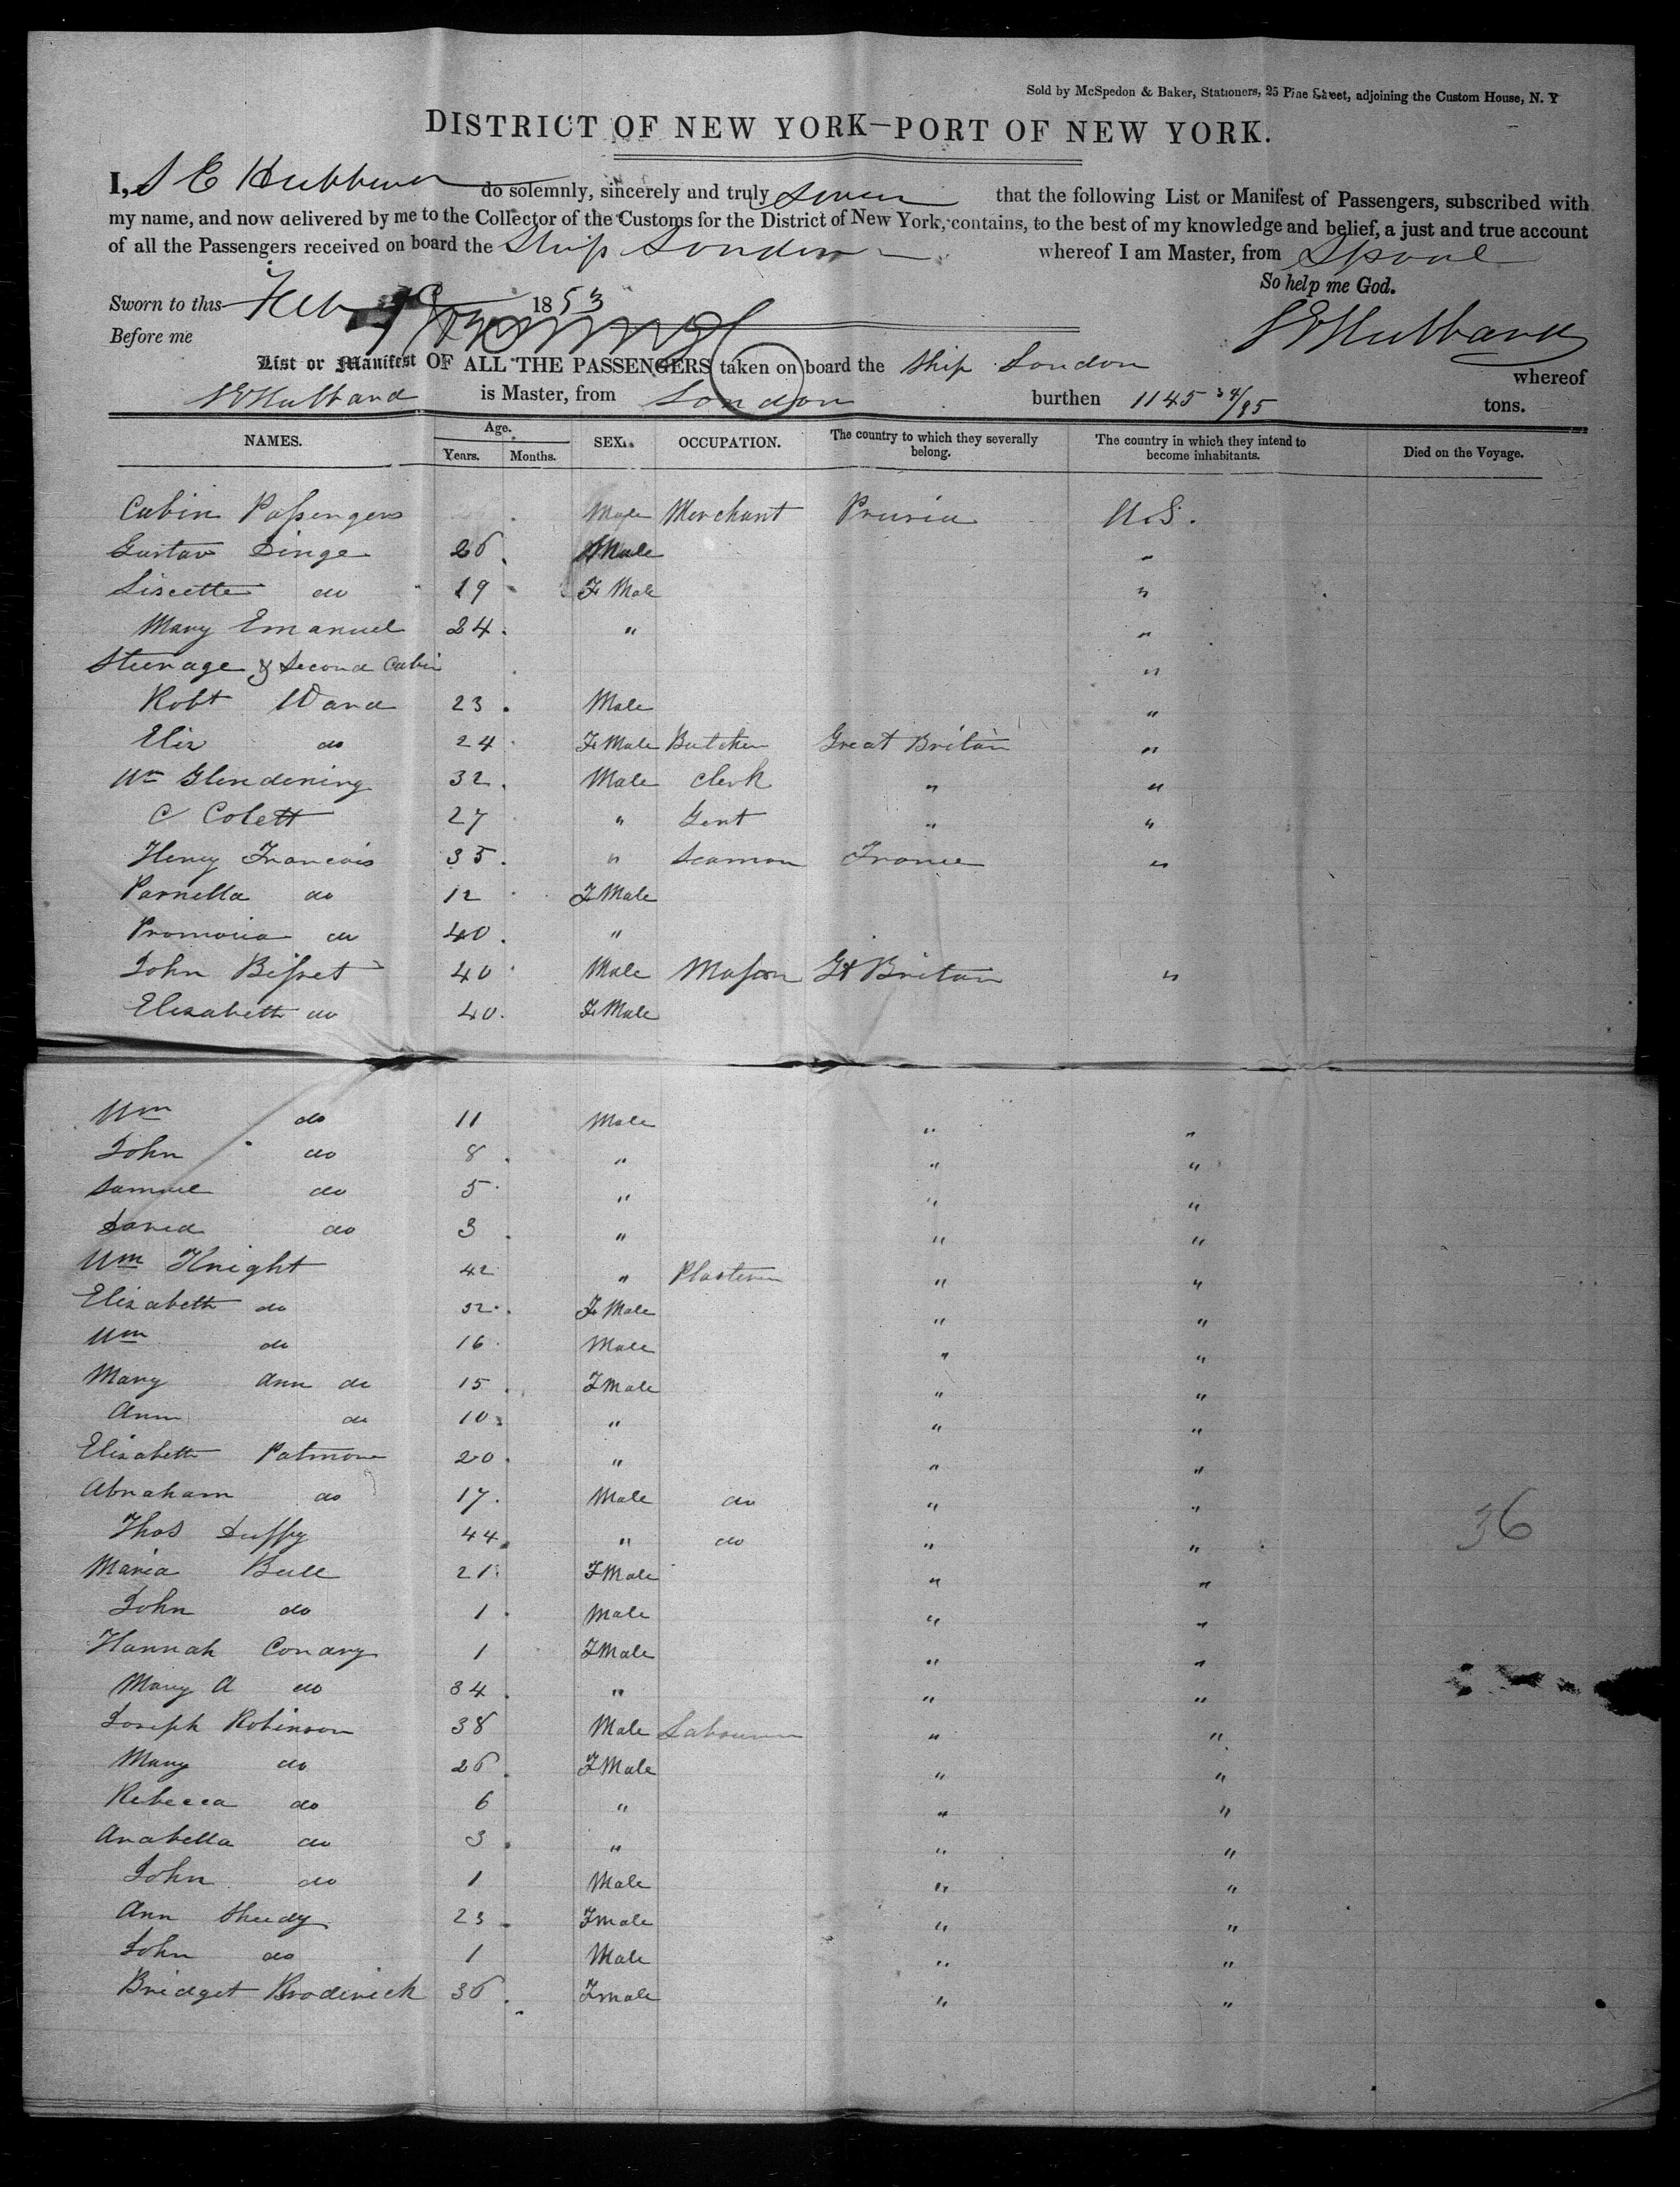 Sold by McSpedon & Baker, Stationers, 25 Pine Street, adjoining the Custom House, N. Y
DISTRICT OF NEW YORK—PORT OF NEW YORK.
I, S E Hubbard do solemnly, sincerely and truly swear that the following List or Manifest of Passengers, subscribed with
my name, and now delivered by me to the Collector of the Customs for the District of New York, contains, to the best of my knowledge and belief, a just and true account
of all the Passengers received on board the Ship London whereof I am Master, from
So help me God.
Sworn to this Feb 1853
Before me
S E Hubbard
List or Manifest OF ALL THE PASSENGERS taken on board the Ship London whereof
S E Hubbard is Master, from London burthen 1145 34/95 tons.
NAMES. Age. Years. Months. SEX. OCCUPATION. The country to which they severally belong. The country in which they intend to become inhabitants. Died on the Voyage.
Cabin Passengers Male Merchant Prusia U.S.
Gustav Dinge 26 Male "
Liscette do 19 Fe Male "
Mary Emanuel 24 " "
Steerage & Second Cabin "
Robt Ward 23 Male "
Eliz do 24 Fe Male Butcher Great Britain "
Wm Glendening 32 Male Clerk " "
C Colett 27 " Gent " "
Henry Francois 35 " Seaman France "
Parnella do 12 F Male
do 40 "
John Bisset 40 Male Mason Gt Britain "
Elizabeth do 40 Fe Male
Wm do 11 Male " "
John do 8 " " "
Samuel do 5 " " "
David do 3 " " "
Wm Knight 42 " Plasterer " "
Elizabeth do 32 Fe Male " "
Wm do 16 Male " "
Mary Ann do 15 F Male " "
Ann do 10 " " "
Elizabeth Patmore 20 " " "
Abraham do 17 Male do " "
Thos Duffy 44 " do " "
36
Maria Bull 21 F Male " "
John do 1 Male " "
Hannah Conary 1 F Male " "
Mary A do 34 " " "
Joseph Robinson 38 Male Labourer " "
Mary do 26 F Male " "
Rebecca do 6 " " "
Anabella do 3 " " "
John do 1 Male " "
Ann Sheedy 23 F male " "
John do 1 Male " "
Bridget Broderick 36 F male " "